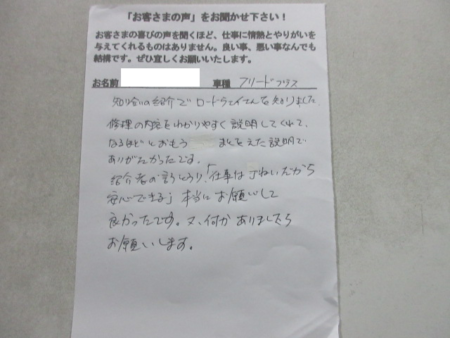 「お客さまの声」をお聞かせ下さい!
お客さまの喜びの声を聞くほど、仕事に情熱とやりがいを
与えてくれるものはありません。良い事、悪い事なんでも
結構です。ぜひ宜しくお願いいたします。
お名前 車種 フリードプラス
知り合いの紹介でロードウェイさんを知りました
修理の内容をわかりやすく説明してくれて、
なるほどとおもう まとをえた説明で
ありがたかったです。
紹介者の言うとうり「仕事はていねいだから
安心できる」本当にお願いして
良かったです。又、何かありましたら
お願いします。